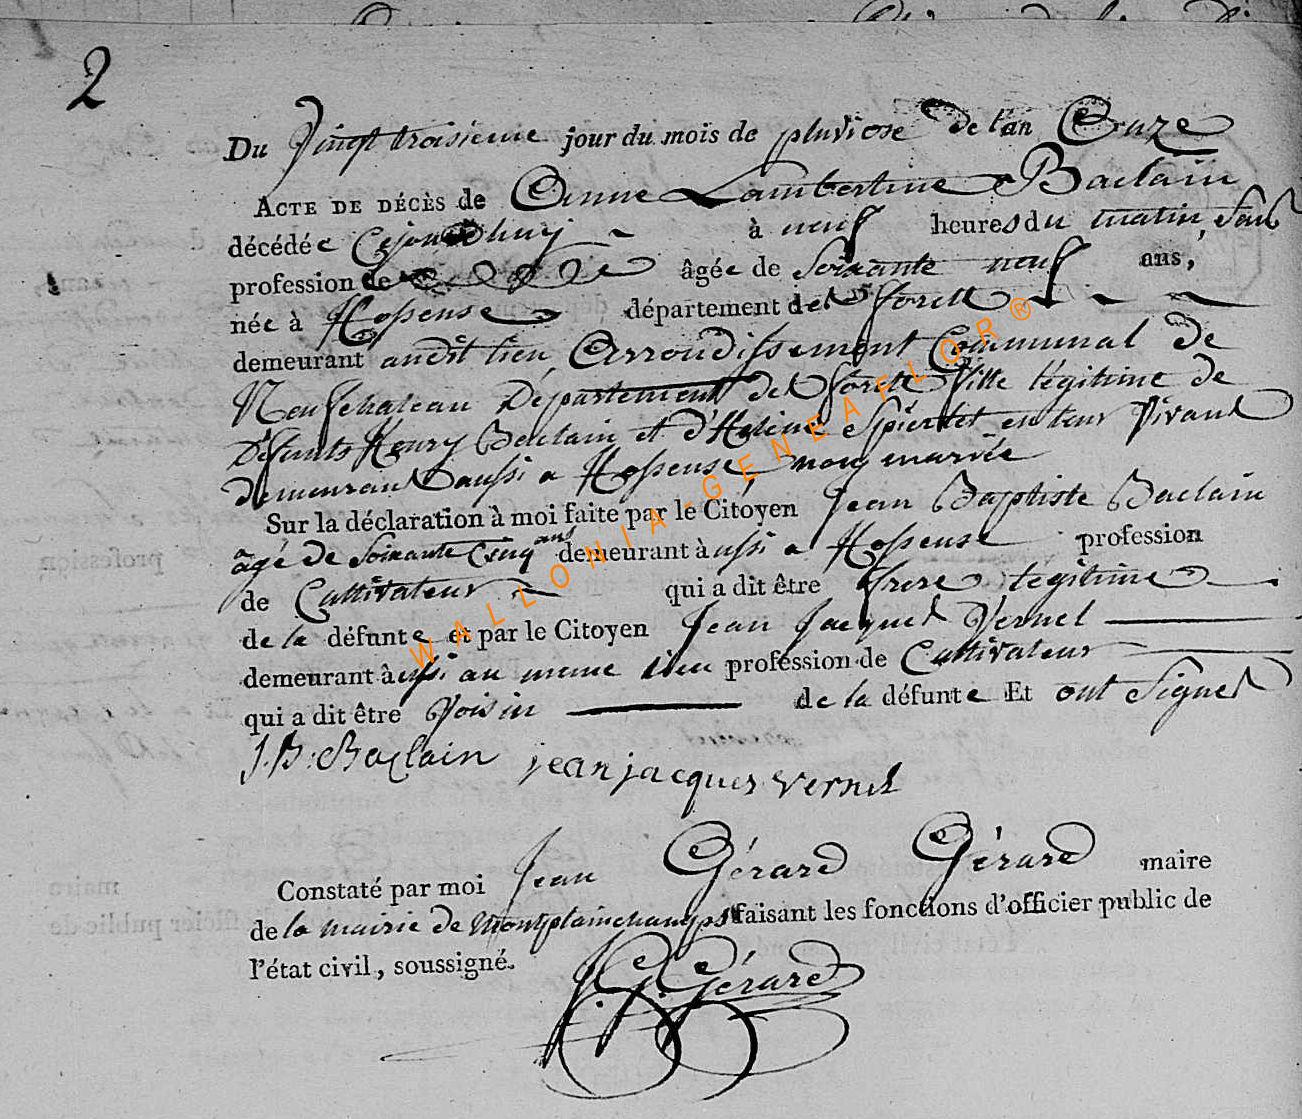 2
Du Vingt troisieme jour du mois de pluviose de l'an Onze
ACTE DE DÉCÈS de Anne Lambertine Baclain
décédée Cejourdhuy à neuf heures du matin, Sans
profession de âgée de Soixante neuf ans,
née à Hosseuse département des forett
demeurant audit lieu, Arrondissement Communal de
Neufchateau Département des forett fille légitime de
Défunts Henry Baclain et d'Helene en leur Vivant
Demeurant aussi a Hosseuse non mariée
Sur la déclaration à moi faite par le Citoyen Jean Baptiste Baclain
âgé de Soixante Cinq ans demeurant àussi a Hosseuse profession
de Cultivateur qui a dit être frere legitime
de la défunte et par le Citoyen Jean Jacques Vernel
demeurant àussi au meme lieu profession de Cultivateur
qui a dit être Voisin de la défunte Et ont Signes
J.B. Baclain jean jacques vernel
Constaté par moi Jean Gérard Gérard maire
de la mairie de Montplainchamps faisant les fonctions d'officier public de
l'état civil, soussigné.
J G. Gérard
WALLONIA-GENEAFLOR®